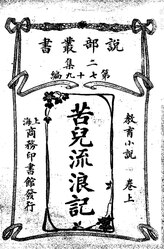 說部叢書
二集
第七十九編
教育小說 卷上
苦兒流浪記
上海商務印書館發行